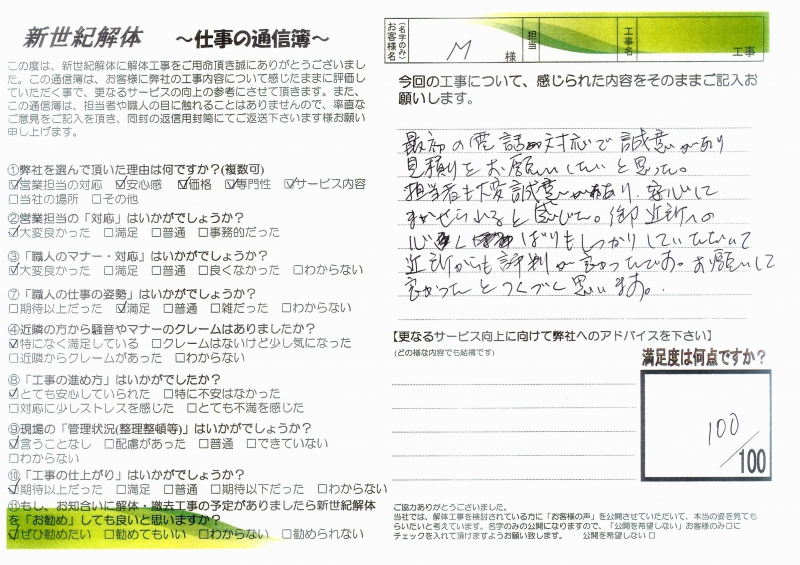 新世紀解体 ～仕事の通信簿～
この度は、新世紀解体に解体工事をご用命頂き誠にありがとうございまし
た。この通信簿は、お客様に弊社の工事内容について感じたままに評価し
ていただく事で、更なるサービスの向上の参考にさせて頂きます。また、
この通信簿は、担当者や職人の目に触れることはありませんので、率直な
ご意見をご記入を頂き、同封の返信用封筒にてご返送下さいます様お願い
申し上げます。
①弊社を選んで頂いた理由は何ですか?(複数可)
☑営業担当の対応 ☑安心感 ☑価格 ☑専門性 ☑サービス内容
□当社の場所 □その他
②営業担当の「対応」はいかがでしょうか?
☑大変良かった □満足 □普通 □事務的だった
③「職人のマナー・対応」はいかがでしょうか?
☑大変良かった □満足 □普通 □良くなかった □わからない
⑦「職人の仕事の姿勢」はいかがでしょうか?
□期待以上だった ☑満足 □普通 □雑だった □わからない
④近隣の方から騒音やマナーのクレームはありましたか?
☑特になく満足している □クレームはないけど少し気になった
□近隣からクレームがあった □わからない
⑧「工事の進め方」はいかがでしたか?
☑とても安心していられた □特に不安はなかった
□対応に少しストレスを感じた □とても不満を感じた
⑨現場の「管理状況(整理整頓等)」はいかがでしょうか?
☑言うことなし □配慮があった □普通 □できていない
□わからない
⑩「工事の仕上がり」はいかがでしょうか?
☑期待以上だった □満足 □普通 □期待以下だった □わからない
⑪もし、お知合いに解体・撤去工事の予定がありましたら新世紀解体
を「お勧め」しても良いと思いますか?
☑ぜひ勧めたい □勧めてもいい □わからない □勧められない
お客様名(名字のみ) M 様 担当 工事名 工事
今回の工事について、感じられた内容をそのままご記入お
願いします。
最初の電話の対応で誠意があり
見積りをお願いしたいと思った。
担当者も大変誠意があり、安心して
まかせられると感じた。御近所への
心くばりもしっかりしていただいて
近所からも評判が良かったです。お願いして
良かったとつくづく思います。
【更なるサービス向上に向けて弊社へのアドバイスを下さい】
(どの様な内容でも結構です)
満足度は何点ですか?
100/100
ご協力ありがとうございました。
当社では、解体工事を検討されている方に「お客様の声」を公開させていただいて、本当の姿を見ても
らいたいと考えています。名字のみの公開になりますので、「公開を希望しない」お客様のみ□に
チェックを入れて頂けますようお願い致します。 公開を希望しない □